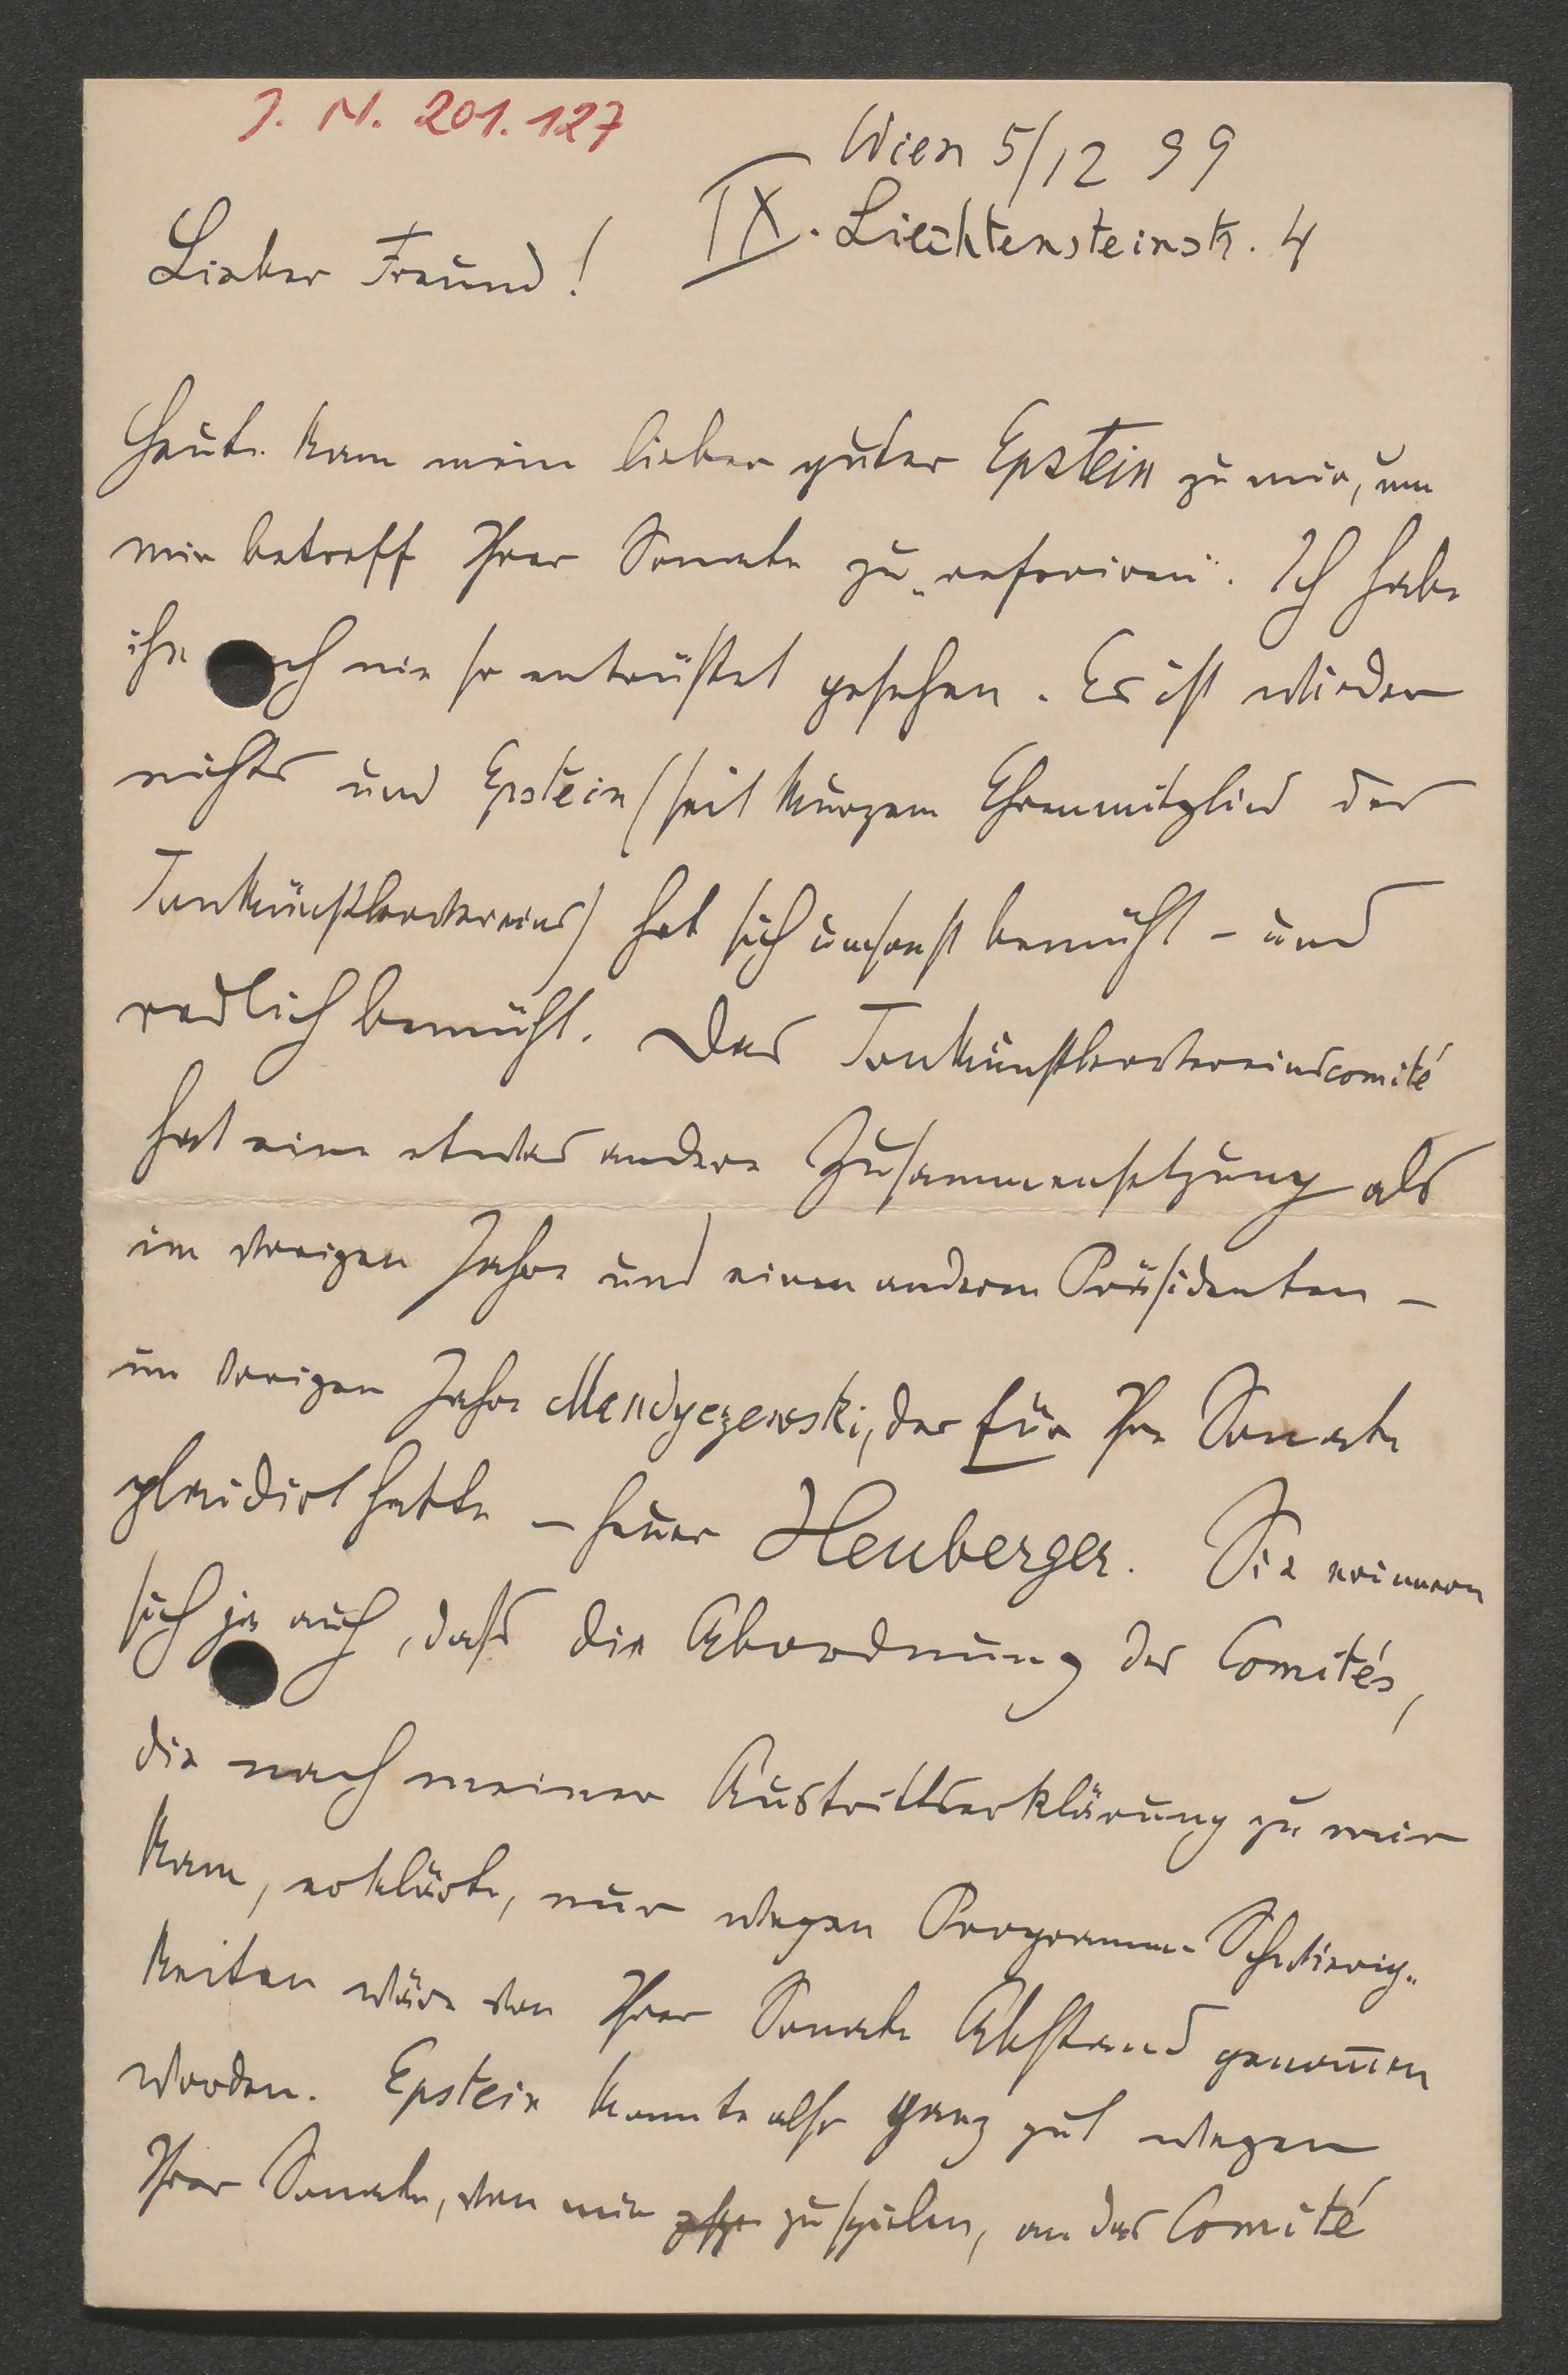 J. N. 201.127
Wien 5/12 99
IX. Liechtensteinstr. 4
Lieber Freund!
Heute kam mein lieber guter Epstein zu mir, um
mir betreff Ihrer Sonate zu „referiren". Ich habe
ihn noch nie so entrüstet gesehen. Es ist wieder
nichts und Epstein (seit kurzem Ehrenmitglied des
Tonkünstlervereins) hat sich umsonst bemüht – und
redlich bemüht. Das Tonkünstlervereinscomité
hat eine etwas andere Zusammensetzung als
im vorigen Jahre und einen anderen Präsidenten –
im vorigen Jahre Mandyczewski, der für Ihre Sonate
plaidirt hatte – heuer Heuberger. Sie erinnern
sich ja auch, dass die Abordnung des Comités,
die nach meiner Austrittserklärung zu mir
kam, erklärte, nur wegen Programm-Schwierig-
keiten wäre von Ihrer Sonate Abstand genom̅en
worden. Epstein konnte also ganz gut wegen
Ihrer Sonate, von mir zu spielen, an das Comité